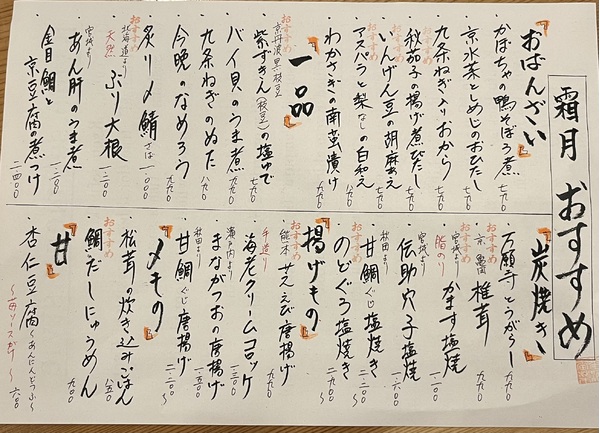 霜月 おすすめ
おばんざい
かぼちゃの鴨そぼろ煮 七九〇
京水菜としめじのおひたし 七九〇
九条ねぎ入りおから 七九〇
おすすめ
秋茄子の揚げ煮びたし 七九〇
おすすめ
いんげん豆の胡麻あえ 七九〇
おすすめ
アスパラと梨なしの白和え 八九〇
わかさぎの南蛮漬け 九九〇
一品
おすすめ
京丹波黒枝豆
紫ずきん(枝豆)の塩ゆで 七九〇
バイ貝のうま煮 九九〇
九条ねぎのぬた 八九〇
今晩のなめろう 九九〇
炙り〆鯖さば 一、〇〇〇
おすすめ
北海道より
天然 ぶり大根 一、二〇〇
宮城より
あん肝のうま煮 一、三〇〇
金目鯛と
京豆腐の煮つけ 二、四〇〇
炭焼き
万願寺とうがらし 七九〇
おすすめ
京 亀岡 椎茸 九九〇
おすすめ
宮城より
脂のり かます塩焼 一、二〇〇
宮城より
伝助穴子塩焼 一、六〇〇
秋田より
甘鯛ぐじ塩焼き 二、二〇〇〜
のどぐろ塩焼き 二、九〇〇〜
揚げもの
おすすめ
熊本 せえび唐揚げ 七九〇
手造り
海老クリームコロッケ 一、三〇〇
瀬戸内より
まながつおの唐揚げ 一、五〇〇
秋田より
甘鯛ぐじ唐揚げ 二、二〇〇〜
〆もの
おすすめ
松茸の炊き込みごはん 八五〇
鯛だしにゅうめん 九〇〇
甘
杏仁豆腐〜あんにんどうふ〜 六〇〇
〜苺ソースがけ〜